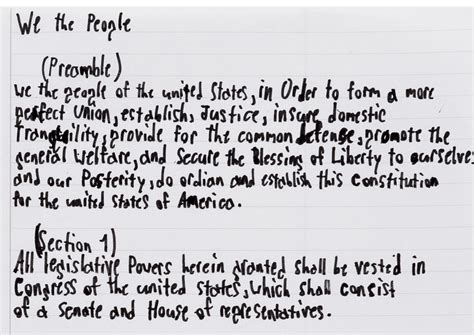 We the People
(Preamble)
we the people of the united States, in Order to form a more
perfect Union, establish, Justice, insure domestic
Tranquility, provide for the common defense, promote the
general Welfare, and Secure the Blessing of Liberty to ourselves
and our Posterity, do ordian and establish this Constitution
for the united states of America.
(Section 1)
All legislative Powers herein granted shall be vested in
Congress of the united states, which shall consist
of a Senate and House of representatives.